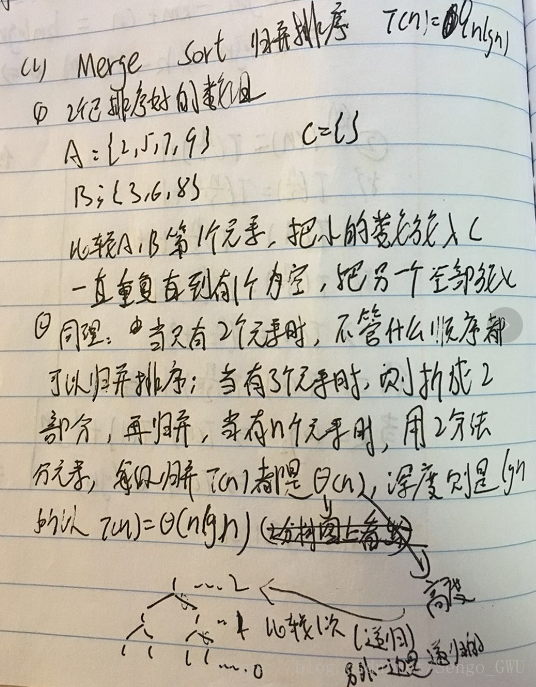 (4) Merge Sort 归并排序 T(n)=Θ(nlgn)
① 2个已排序好的数组
A:{2,5,7,9} C={}
B:{3,6,8}
比较A,B第1个元素,把小的数放入C
一直重复直到有1个为空,把另一个全部放入
② 同理:当只有2个元素时,不管什么顺序都
可以归并排序;当有3个元素时,则拆成2
部分,再归并,当有n个元素时,用2分法
分元素,每级归并T(n)都是Θ(n),深度则是lgn
所以 T(n)=Θ(nlgn)
高度
1 ....2
..1 比较1次 (递归)
11....0 另外一边是递归的
GWU